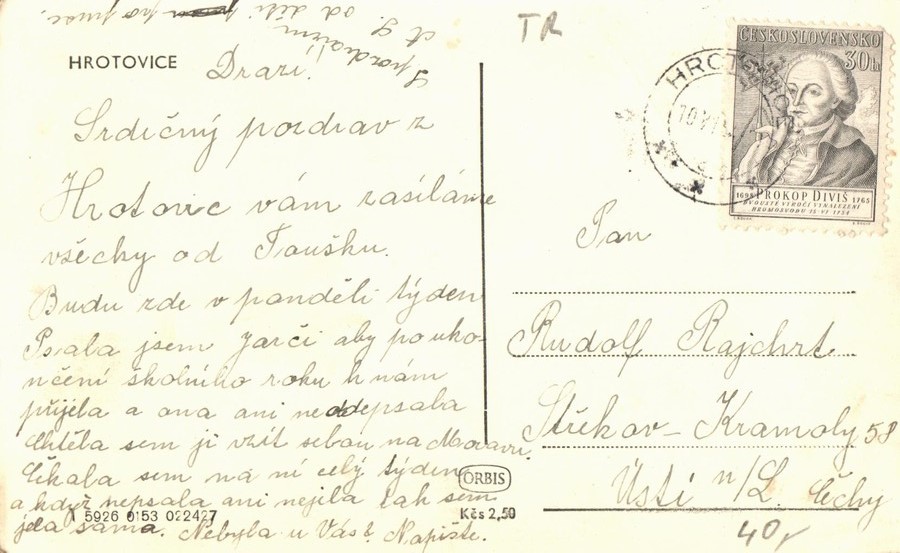 HROTOVICE
Drazí!
Srdičný pozdrav z
Hrotovic vám zasíláme
všechy od Toušku.
Budu zde v panděli týden
Psala jsem Jarči aby pouko-
nčení školního roku h nám
přijela a ana ani neodepsala
Chtěla sem ji vzít sebou na Moravu.
Čekala sem na ní celý týden
a když nepsala ani nejela tak sem
jela sama. Nebyla u Vás? Napište.
S pozdravem
A S.
od dětí po puse.
1 5926 0153 022427
ORBIS
Kčs 2,50
TR
HROTOVICE
10.VII
ČESKOSLOVENSKO
30h
1698 PROKOP DIVIŠ 1765
DVOUSTÉ VÝROČÍ VYNALEZENÍ
HROMOSVODU 15.VI.1754
Pan
Rudolf Rajchrt
Střekov-Kramoly 58
Ústí n/L. Čechy
40,-